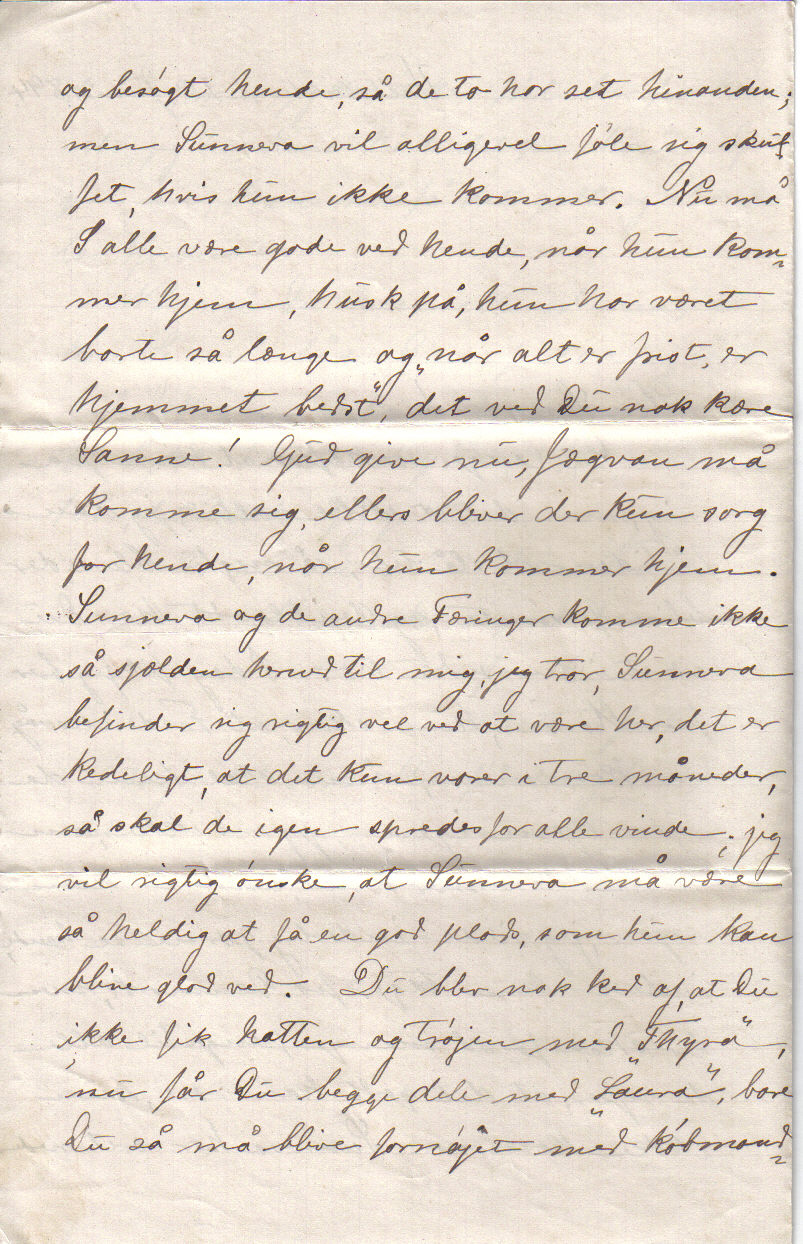 og besógt hende, så de to har set hinanden;
men Sunneva vil alligevel föle sig skuf-
fet, hvis hun ikke kommer. Nu må
I alle være gode ved hende, når hun kom-
mer hjem, husk på, hun har været
borte så længe og „når alt er prist, er
hjemmet bedst", det ved Du nok kære
Sanne! Gud give nu, Jægvan må
komme sig, ellers bliver der kun sorg
for hende, når hun kommer hjem.
Sunneva og de andre Færinger komme ikke
så sjælden herned til mig, jeg tror, Sunneva
befinder sig rigtig vel ved at være her, det er
kedeligt, at det kun varer i tre måneder,
så skal de igen spredes for alle vinde; jeg
vil rigtig ónske, at Sunneva må være
så heldig at få en god plads, som hun kan
blive glad ved. Du blev nok ked af, at Du
ikke fik hatten og trójen med „Thyra",
nu får Du begge dele med „Laura", bare
Du så må blive fornójet med kóbmand-